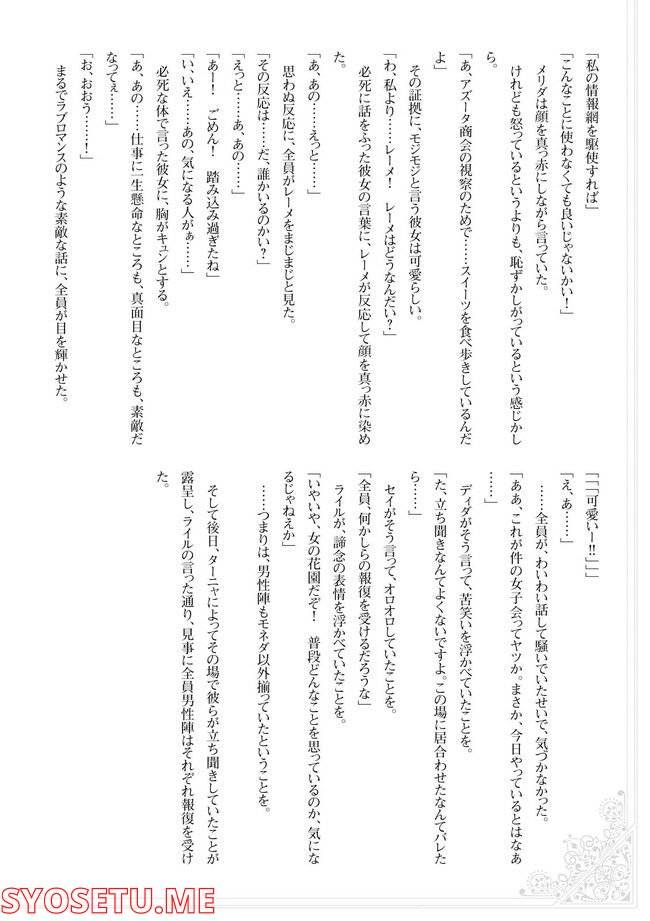 「私の情報網を駆使すれば」
「こんなことに使わなくても良いじゃないかい！」
メリダは顔を真っ赤にしながら言っていた。
けれども怒っているというよりも、恥ずかしがっているという感じかし
ら。
「あ、アズータ商会の視察のためで……スイーツを食べ歩きしているんだ
よ」
その証拠に、モジモジと言う彼女は可愛らしい。
「わ、私より……レーメ！　レーメはどうなんだい？」
必死に話をふった彼女の言葉に、レーメが反応して顔を真っ赤に染め
た。
「あ、あの……えっと……」
思わぬ反応に、全員がレーメをまじまじと見た。
「その反応は……だ、誰かいるのかい？」
「えっと……あ、あの……」
「あー！　ごめん！　踏み込み過ぎたね」
「い、いえ……あの、気になる人がぁ……」
必死な体で言った彼女に、胸がキュンとする。
「あ、あの……仕事に一生懸命なところも、真面目なところも、素敵だ
なってぇ……」
「お、おおう……！」
まるでラブロマンスのような素敵な話に、全員が目を輝かせた。
「「「可愛いー!!」」」
「え、あ……」
……全員が、わいわい話して騒いでいたせいで、気づかなかった。
「ああ、これが件の女子会ってヤツか。まさか、今日やっているとはなあ
……」
ディダがそう言って、苦笑いを浮かべていたことを。
「た、立ち聞きなんてよくないですよ。この場に居合わせたなんてバレた
ら……」
セイがそう言って、オロオロしていたことを。
「全員、何かしらの報復を受けるだろうな」
ライルが、諦念の表情を浮かべていたことを。
「いやいや、女の花園だぞ！　普段どんなことを思っているのか、気にな
るじゃねえか」
……つまりは、男性陣もモネダ以外揃っていたということを。
そして後日、ターニャによってその場で彼らが立ち聞きしていたことが
露呈し、ライルの言った通り、見事に全員男性陣はそれぞれ報復を受け
た。
SYOSETU.ME
SYOSETU.ME